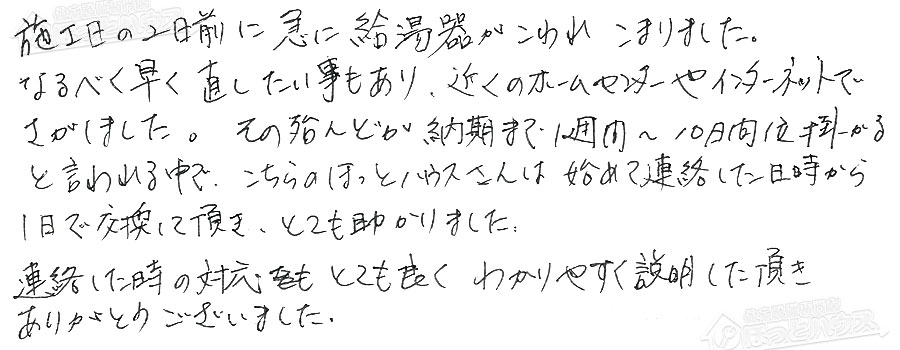 施工日の2日前に急に給湯器がこわれ こまりました。
なるべく早く直したい事もあり、近くのホームセンターやインターネットで
さがしました。その殆んどが納期まで1週間～10日間位掛かる
と言われる中で、こちらのほっとハウスさんは始めて連絡した日時から
1日で交換して頂き、とても助かりました。
連絡した時の対応もとても良くわかりやすく説明した頂き
ありがとうございました。
ほっとハウス